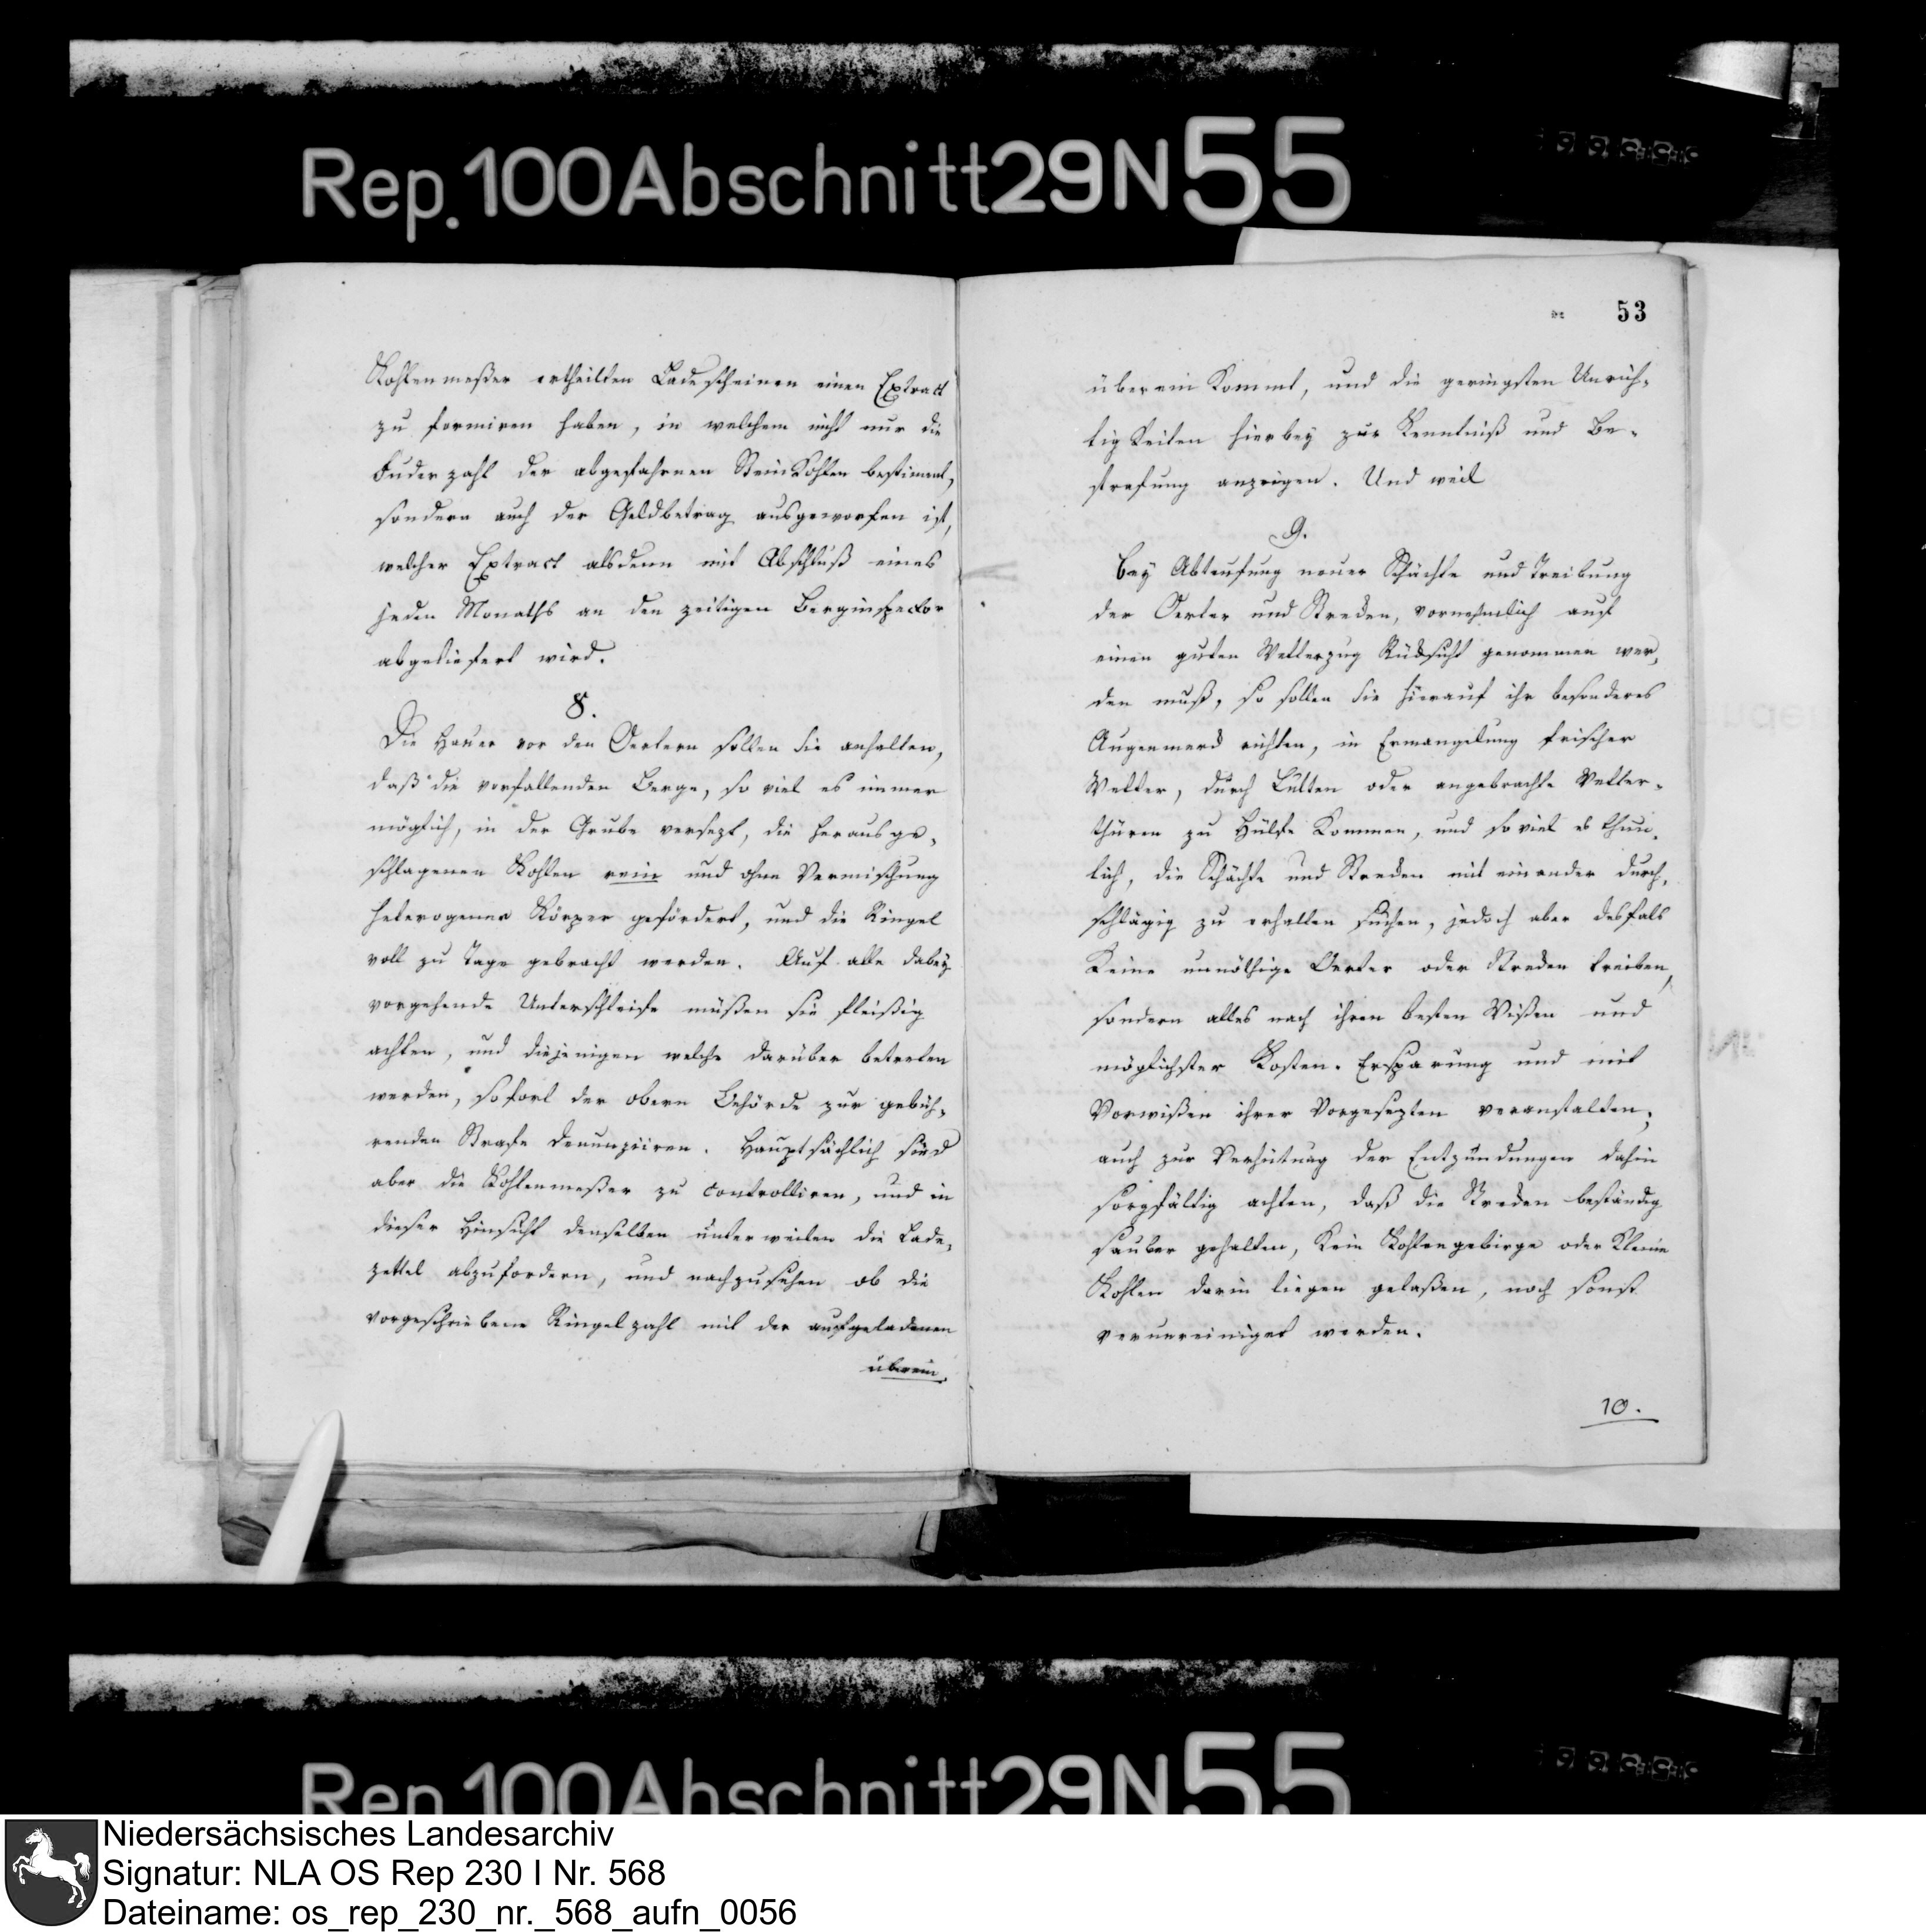 Rep. 100 Abschnitt 29 N 55
Kohlenmeßer ertheilten Ladescheinen einen Extract
zu formiren haben, in welchem nicht nur die
Fuderzahl der abgefahrnen Steinkohlen bestimmt,
sondern auch der Geldbetrag ausgeworfen ist,
welcher Extract alsdenn mit Abschluß eines
jeden Monaths an den zeitigen Berginspector
abgeliefert wird.
8.
Die Hauer vor den Oertern sollen sie anhalten,
daß die vorfallenden Berge, so viel es immer
möglich, in der Grube versezt, die herausge-
schlagenen Kohlen rein und ohne Vermischung
heterogener Körper gefördert, und die Ringel
voll zu Tage gebracht werden. Auf alle dabey
vorgehende Unterschleife müßen sie fleißig
achten, und diejenigen welche darüber betreten
werden, sofort der obern Behörde zur gebüh-
renden Strafe denunziiren. Hauptsächlich sind
aber die Kohlenmeßer zu controlliren, und in
dieser Hinsicht denselben unterweilen die Lade-
zettel abzufordern, und nachzusehen ob die
vorgeschriebene Ringelzahl mit der aufgeladenen
überein-
53
überein kommt, und die geringsten Unrich-
tigkeiten hierbey zur Kenntniß und Be-
strafung anzeigen. Und weil
9.
Bey Abteufung neuer Schächte und Treibung
der Oerter und Strecken, vornehmlich auf
einen guten Wetterzug Rücksicht genommen wer-
den muß, so sollen sie hierauf ihr besonderes
Augenmerck richten, in Ermangelung frischer
Wetter, durch Lutten oder angebrachte Wetter-
thüren zu Hülfe kommen, und so viel es thun-
lich, die Schächte und Strecken mit einander durch-
schlägig zu erhalten suchen, jedoch aber desfals
keine unnöthige Oerter oder Strecken treiben,
sondern alles nach ihren besten Wißen und
möglichster Kosten-Ersparung und mit
Vorwißen ihrer Vorgesezten veranstalten;
auch zur Verhütung der Entzündungen dahin
sorgfältig achten, daß die Strecken beständig
sauber gehalten, kein Kohlengebirge oder kleine
Kohlen darin liegen gelaßen, noch sonst
verunreiniget werden.
10.
Rep. 100 Abschnitt 29 N 55
Niedersächsisches Landesarchiv
Signatur: NLA OS Rep 230 I Nr. 568
Dateiname: os_rep_230_nr._568_aufn_0056